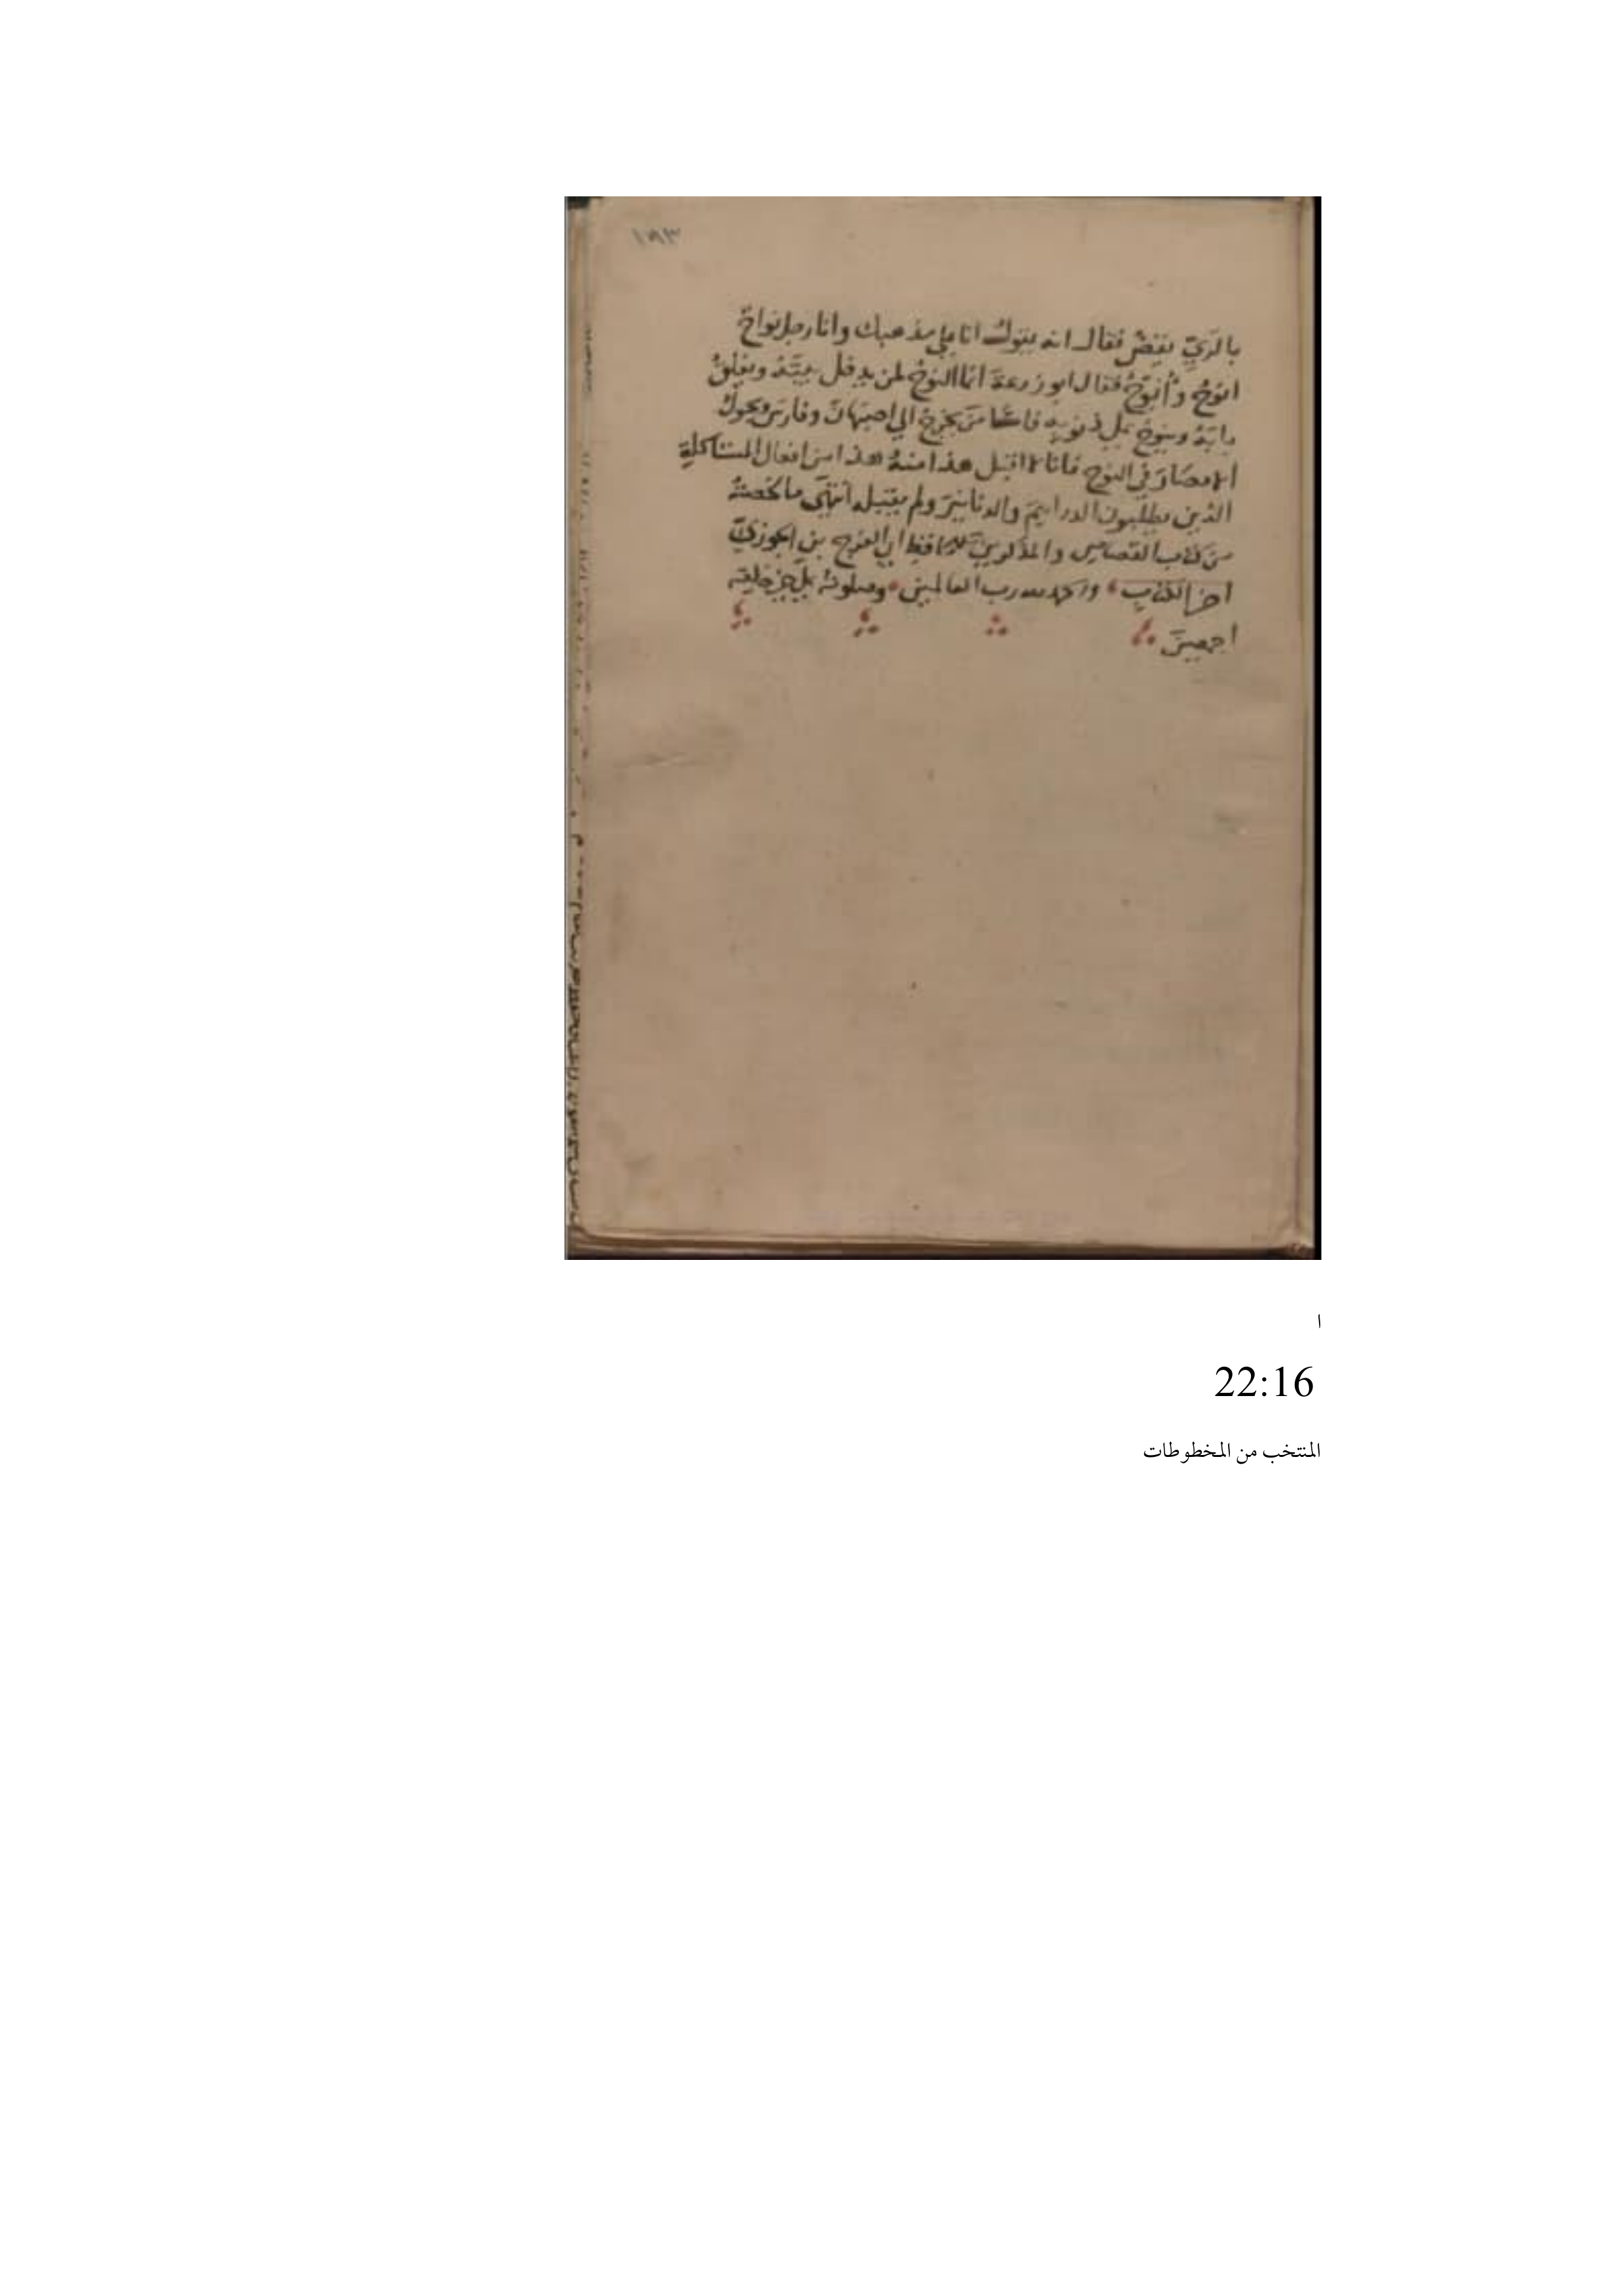 ١٨٣
بالريِّ يقصُّ فقال انه يقولُ انا على مذهبك وانا رجل نواحٌ
انوحُ وأُنَوِّحُ فقال ابو زرعة انما النوحُ لمن يدخل بيتَهُ ويغلقُ
بابَهُ وينوحُ على ذنوبه فامّا مَنْ يخرجُ الى اصبهانَ وفارسَ ويجولُ
الامصارَ في النوح فانا لا اقبل هذا منهُ هذا من افعال المستأكلةِ
الذين يطلبون الدراهمَ والدنانيرَ ولم يقبله انتهى ما لخصتهُ
من كتاب القصاص والمذكرين للحافظ ابي الفرج بن الجوزيّ
اخر الكتاب والحمد لله رب العالمين وصلوته على خير خليقته
اجمعينَ
ا
22:16
المنتخب من المخطوطات